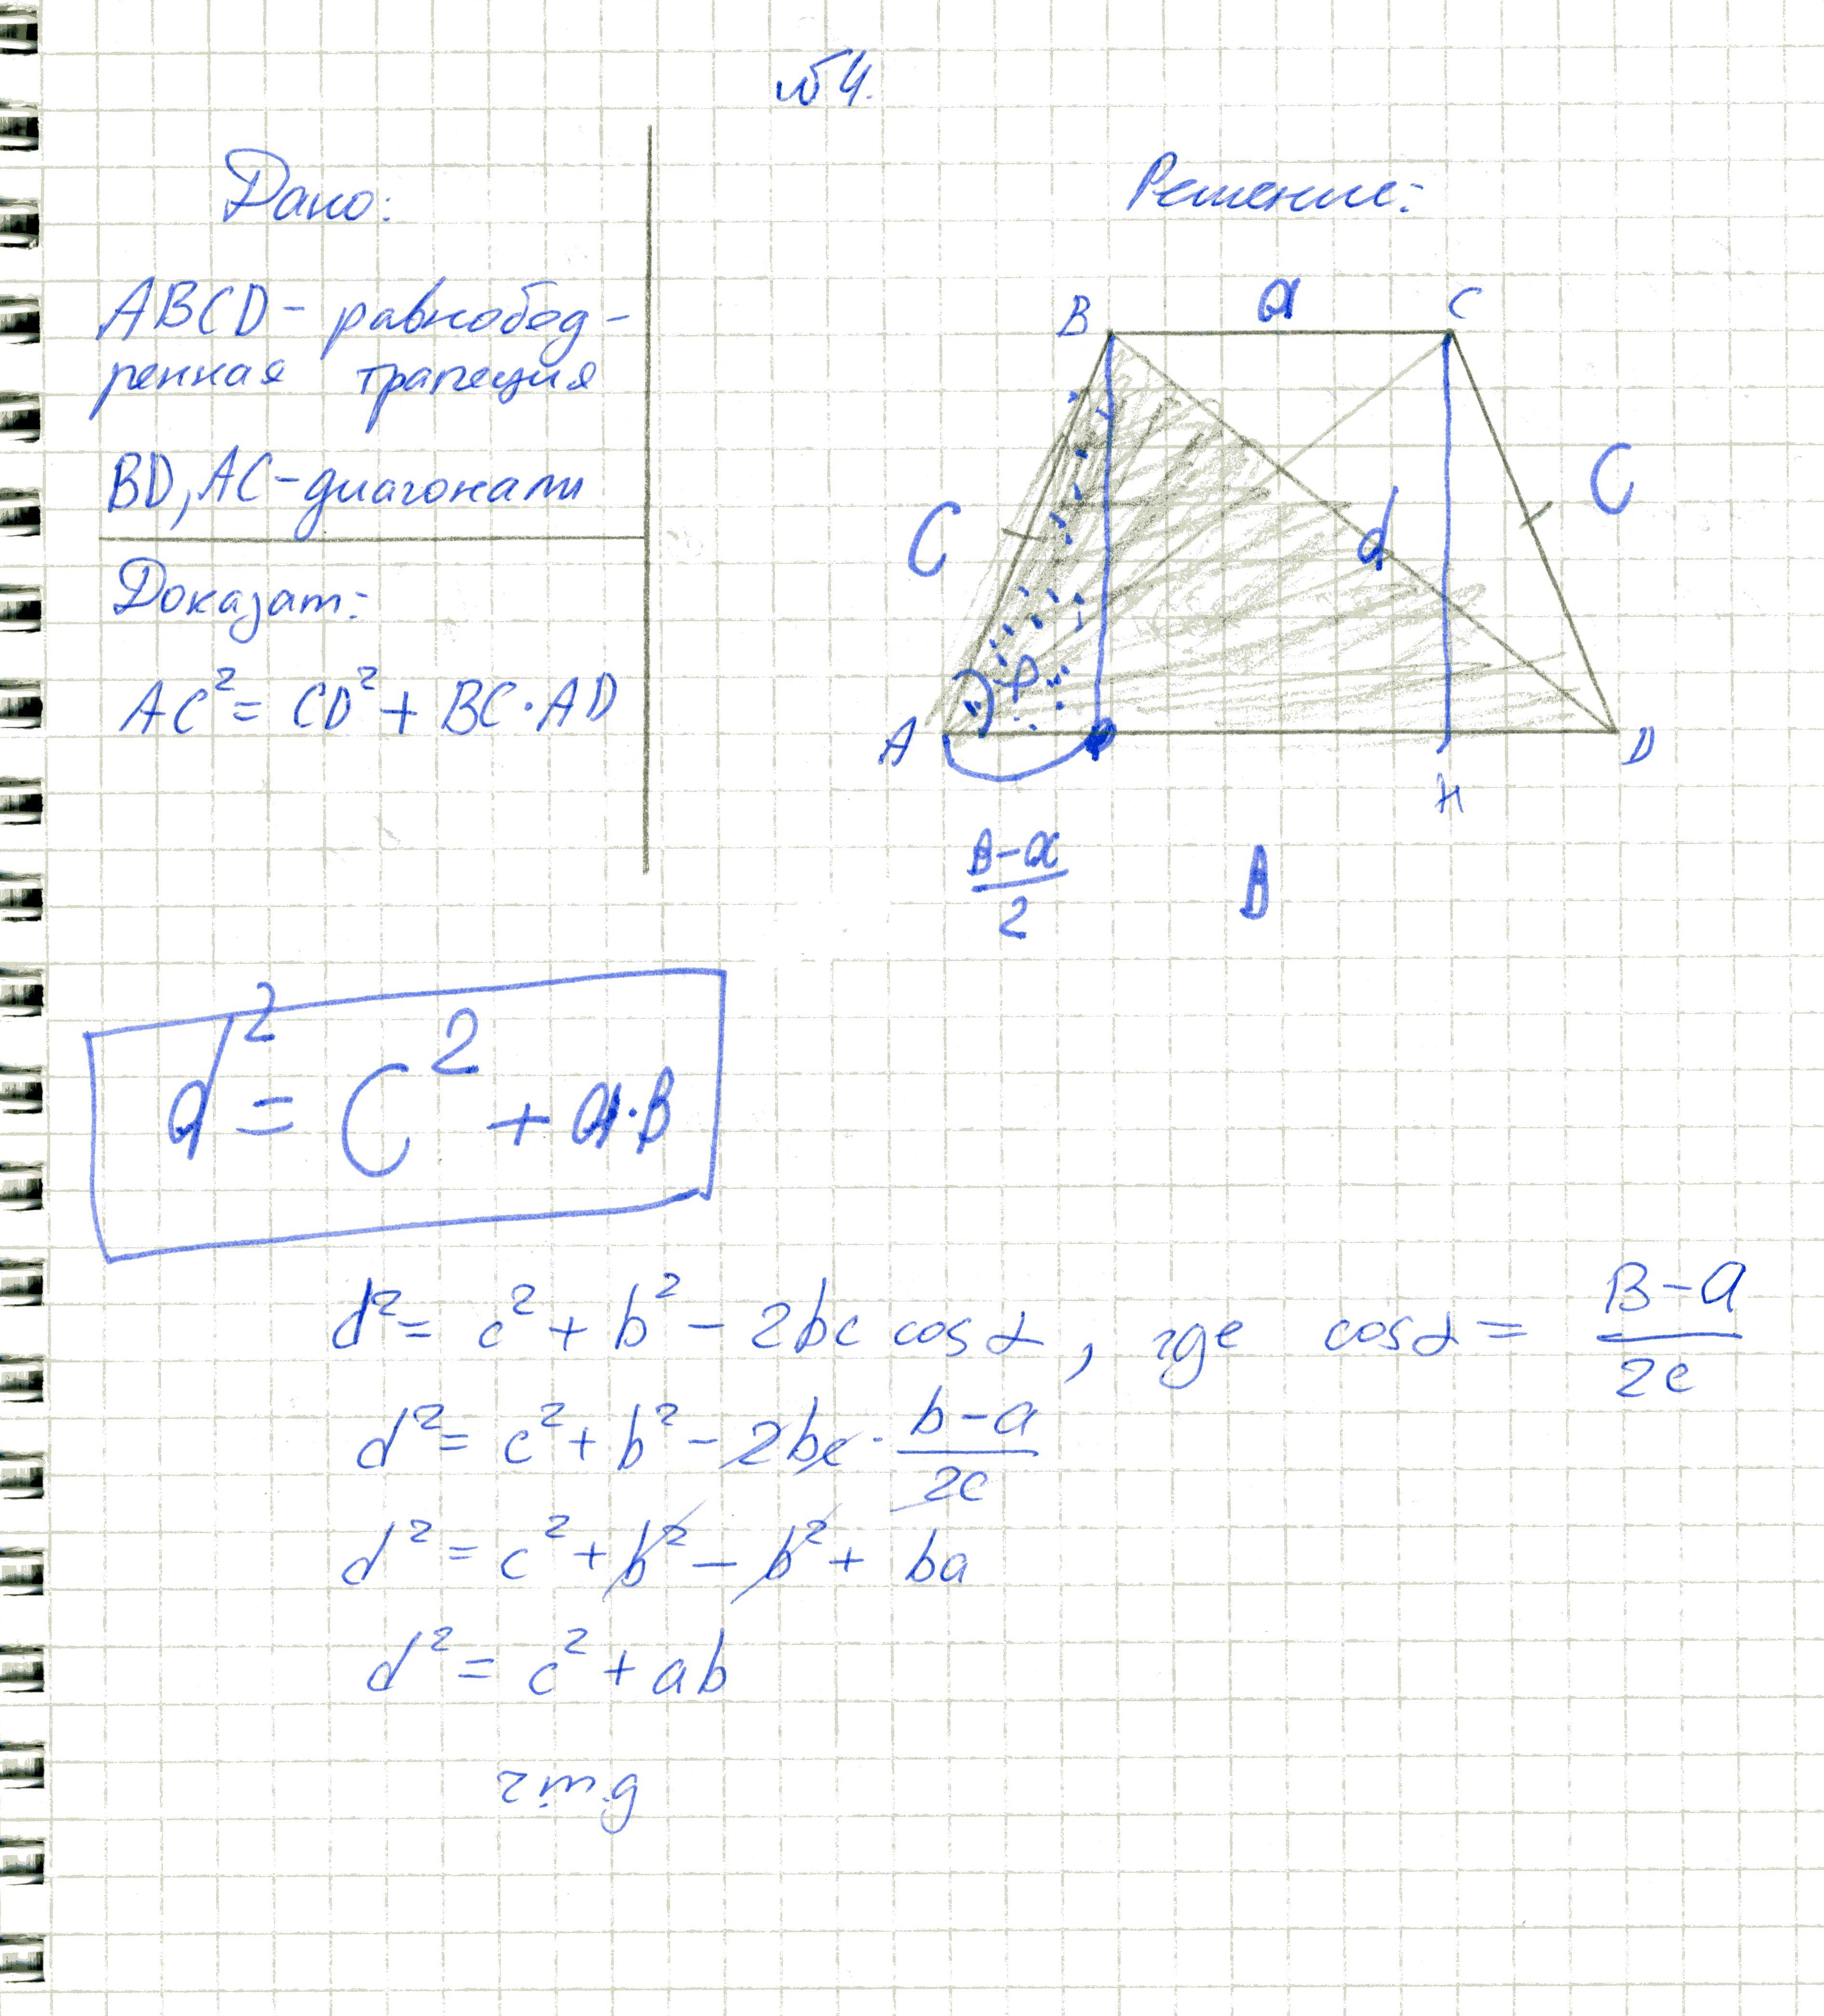 №4.
Дано:
ABCD - равнобед-
ренная трапеция
BD, AC - диагонали
Доказат:
AC² = CD² + BC · AD
Решение:
B a C
C d C
A H D
B-a
2
B
d² = C² + a·B
d² = c² + b² - 2bc cosα, где cosα = B-a
2c
d² = c² + b² - 2bc · b-a
2c
d² = c² + b² - b² + ba
d² = c² + ab